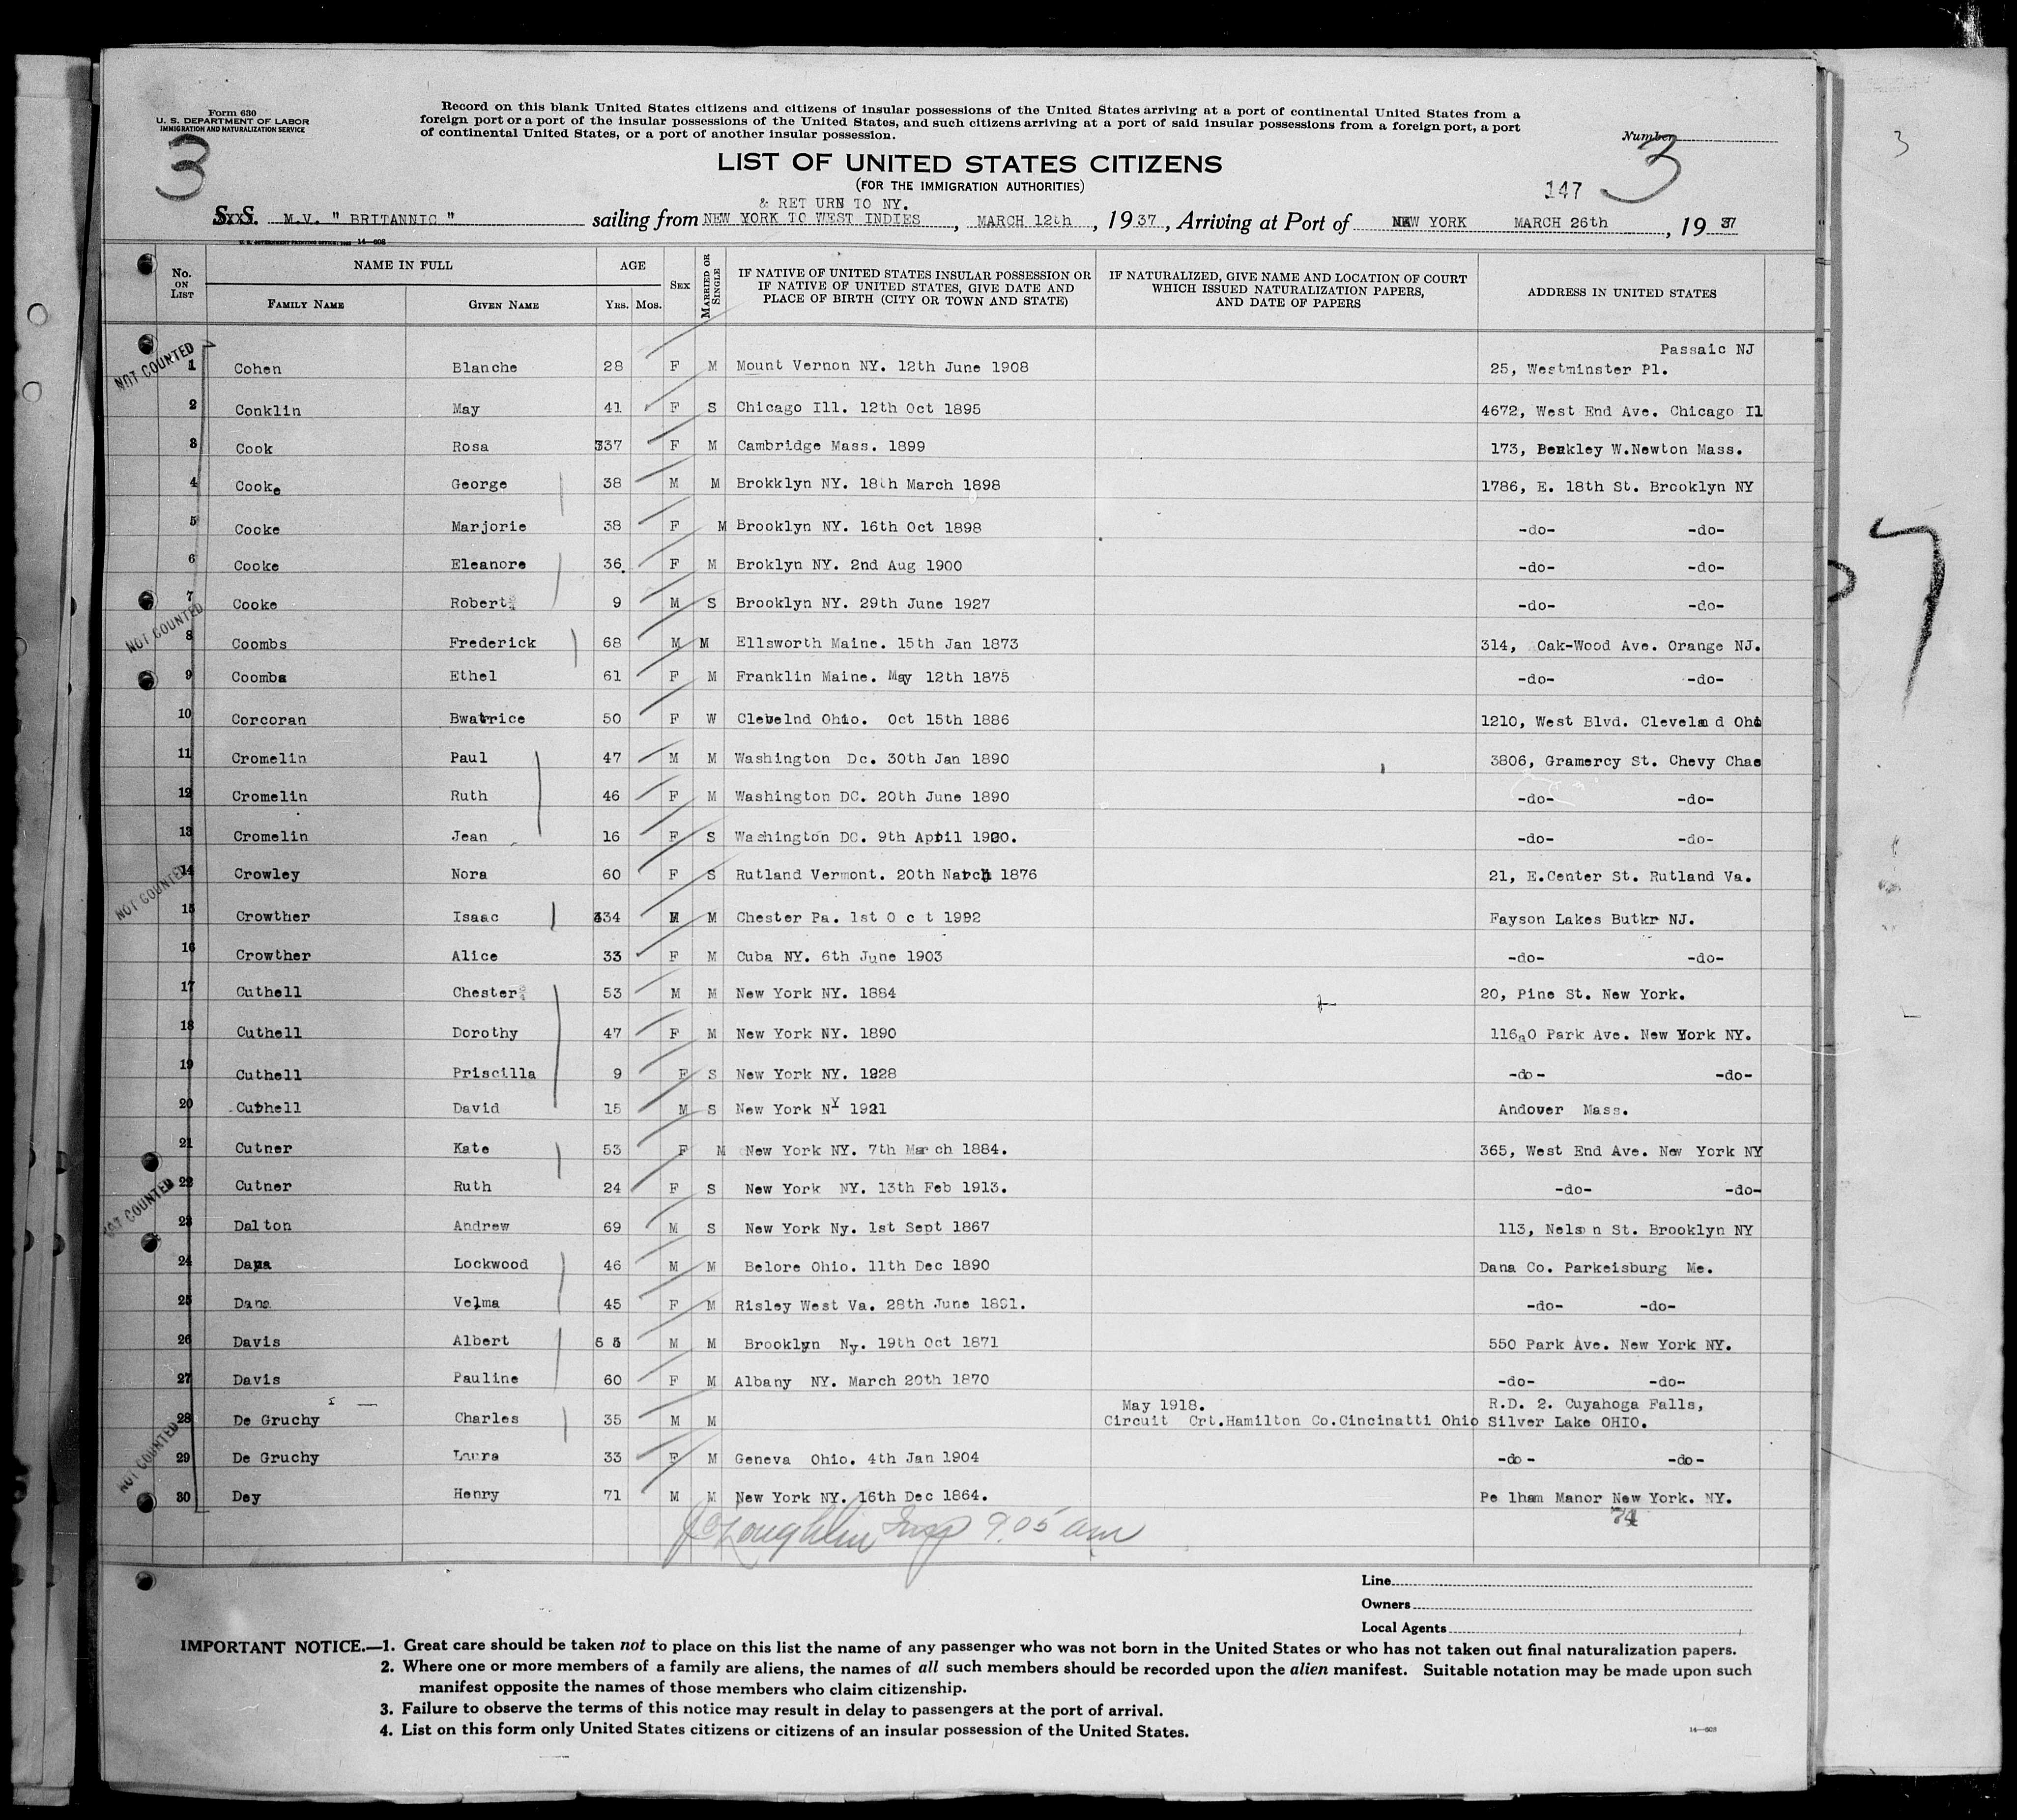 Form 630
U. S. DEPARTMENT OF LABOR
IMMIGRATION AND NATURALIZATION SERVICE
3
Record on this blank United States citizens and citizens of insular possessions of the United States arriving at a port of continental United States from a
foreign port or a port of the insular possessions of the United States, and such citizens arriving at a port of said insular possessions from a foreign port, a port
of continental United States, or a port of another insular possession.
Number
3
3
LIST OF UNITED STATES CITIZENS
(FOR THE IMMIGRATION AUTHORITIES)
147
& RET URN TO NY.
S.S. M.V. " BRITANNIC " sailing from NEW YORK TO WEST INDIES, MARCH 12th, 1937, Arriving at Port of NEW YORK MARCH 26th, 1937
14—608
No. ON LIST NAME IN FULL AGE SEX MARRIED OR SINGLE IF NATIVE OF UNITED STATES INSULAR POSSESSION OR IF NATIVE OF UNITED STATES, GIVE DATE AND PLACE OF BIRTH (CITY OR TOWN AND STATE) IF NATURALIZED, GIVE NAME AND LOCATION OF COURT WHICH ISSUED NATURALIZATION PAPERS, AND DATE OF PAPERS ADDRESS IN UNITED STATES
FAMILY NAME GIVEN NAME YRS. MOS.
NOT COUNTED
Passaic NJ
1 Cohen Blanche 28 F M Mount Vernon NY. 12th June 1908 25, Westminster Pl.
2 Conklin May 41 F S Chicago Ill. 12th Oct 1895 4672, West End Ave. Chicago Il
3 Cook Rosa 337 F M Cambridge Mass. 1899 173, Berkley W.Newton Mass.
4 Cooke George 38 M M Brokklyn NY. 18th March 1898 1786, E. 18th St. Brooklyn NY
5 Cooke Marjorie 38 F M Brooklyn NY. 16th Oct 1898 -do- -do-
6 Cooke Eleanore 36. F M Broklyn NY. 2nd Aug 1900 -do- -do-
7 Cooke Robert 9 M S Brooklyn NY. 29th June 1927 -do- -do-
NOT COUNTED
8 Coombs Frederick 68 M M Ellsworth Maine. 15th Jan 1873 314, Oak-Wood Ave. Orange NJ.
9 Coombs Ethel 61 F M Franklin Maine. May 12th 1875 -do- -do-
10 Corcoran Bwatrice 50 F W Clevelnd Ohio. Oct 15th 1886 1210, West Blvd. Cleveland Oho
11 Cromelin Paul 47 M M Washington Dc. 30th Jan 1890 3806, Gramercy St. Chevy Chae
12 Cromelin Ruth 46 F M Washington DC. 20th June 1890 -do- -do-
13 Cromelin Jean 16 F S Washington DC. 9th April 1920. -do- -do-
14 Crowley Nora 60 F S Rutland Vermont. 20th March 1876 21, E.Center St. Rutland Va.
NOT COUNTED
15 Crowther Isaac 34 M M Chester Pa. 1st O c t 1992 Fayson Lakes Butkr NJ.
16 Crowther Alice 33 F M Cuba NY. 6th June 1903 -do- -do-
17 Cuthell Chester 53 M M New York NY. 1884 20, Pine St. New York.
18 Cuthell Dorothy 47 F M New York NY. 1890 1160 Park Ave. New York NY.
19 Cuthell Priscilla 9 F S New York NY. 1928 -do- -do-
20 Cuthell David 15 M S New York NY 1921 Andover Mass.
21 Cutner Kate 53 F M New York NY. 7th March 1884. 365, West End Ave. New York NY
22 Cutner Ruth 24 F S New York NY. 13th Feb 1913. -do- -do-
NOT COUNTED
23 Dalton Andrew 69 M S New York Ny. 1st Sept 1867 113, Nelson St. Brooklyn NY
24 Dana Lockwood 46 M M Belore Ohio. 11th Dec 1890 Dana Co. Parkeisburg Me.
25 Dana Velma 45 F M Risley West Va. 28th June 1891. -do- -do-
26 Davis Albert M M Brooklyn Ny. 19th Oct 1871 550 Park Ave. New York NY.
27 Davis Pauline 60 F M Albany NY. March 20th 1870 -do- -do-
May 1918. R.D. 2. Cuyahoga Falls,
28 De Gruchy Charles 35 M M Circuit Crt.Hamilton Co.Cincinatti Ohio Silver Lake OHIO.
NOT COUNTED
29 De Gruchy Laura 33 F M Geneva Ohio. 4th Jan 1904 -do- -do-
30 Dey Henry 71 M M New York NY. 16th Dec 1864. Pe lham Manor New York. NY.
74
J O'Loughlin Insp 9.05 am
Line
Owners
Local Agents
IMPORTANT NOTICE.—1. Great care should be taken not to place on this list the name of any passenger who was not born in the United States or who has not taken out final naturalization papers.
2. Where one or more members of a family are aliens, the names of all such members should be recorded upon the alien manifest. Suitable notation may be made upon such
manifest opposite the names of those members who claim citizenship.
3. Failure to observe the terms of this notice may result in delay to passengers at the port of arrival.
4. List on this form only United States citizens or citizens of an insular possession of the United States.
14—608